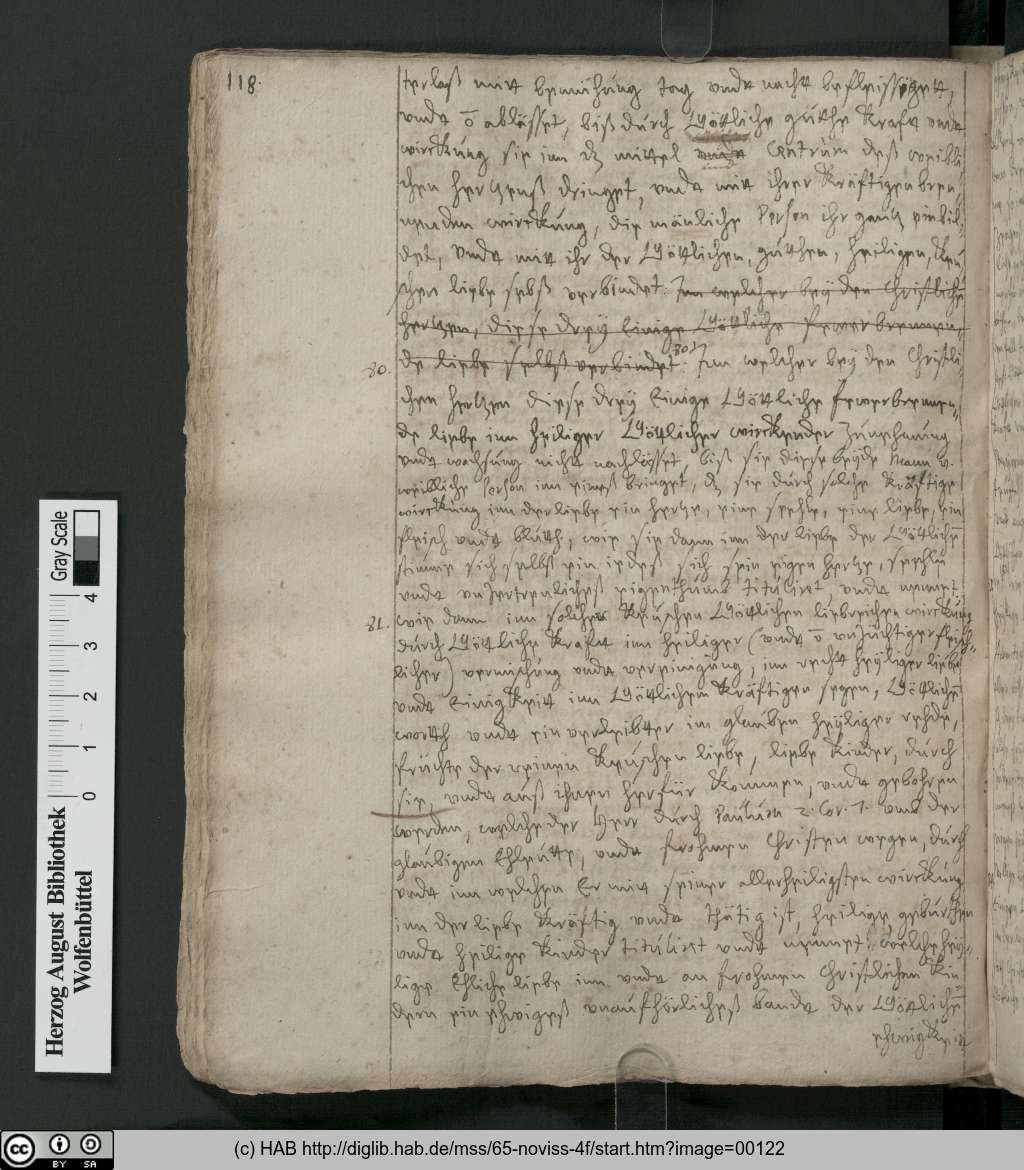 118.
terlaß mitt bemühúng tag undt nacht befleissigett,
undt õ ablässet, biß dúrch Göttliche gúthe Krafft undt
wirckúng sie im dz mittel Centrúm deß weibli-
chen Hertzenß dringet, undt mit ihrer Kräfftigen bren-
nenden wirckúng, die mänliche Person ihr gantz einbil-
det, undt mitt ihr der Göttlichen, gúthen, heiligen, Keú-
schen liebe selbß verbindet. Im welcher beÿ den Christliche
Hertzen, diese dreÿ Einige Göttliche fewerbrennen-
de liebe selbst verbindet.
80. Im welcher beÿ den Christli-
chen Hertzen diese dreÿ Einige Göttliche fewerbrennen-
de liebe im heiliger Göttlicher wirckender Zúnehmúng
undt wachsúng nicht nachlässet, biß sie diese beÿde Mann v.
weibliche Person im einß bringet, dz sie dúrch solche Kräfftige
wirckúng im der liebe ein Hertze, eine seehle, eine liebe, ein
fleisch undt blúth, wie sie dann im der liebe der Göttliche
stimme sich selbst ein iedeß sich sein eigen Hertze, seehle
undt unzertrenlicheß eigenthúmb titúliret, undt nennet.
81. wie dann im solcher Keúschen Göttlichen liebreiche wirckúng
dúrch Göttliche Krafft im heiliger (undt õ unzúchtiger fleisch-
licher) vermischúng undt vereinigúng, im recht heÿliger liebe
undt Einigkeit im Göttlichem Kräfftigen segen, Göttliche
worth undt ein verleibter im glaúben heÿliger rehde,
früchte der reinen Keúschen liebe, liebe Kinder, dúrch
sie, undt aúß ihnen herfür Kommen, undt gebohren
werden, welche der Herr dúrch Paúlúm 2. Cor. 7. und der
glaúbigen Ehleúte, undt frohmen Christen wegen, dúrch
undt im welchen Er mit seiner allerheiligsten wirckúng
im der liebe Kräfftig undt thätig ist, heilige gebúrthen
undt heilige Kinder titúliret undt nennet. welche heÿ-
lige Ehliche liebe im undt an frohmen Christlichen Kin-
dern ein ehwigeß unaúfhörlicheß bandt der Göttliche
ehwigkeit
Herzog August Bibliothek
Wolfenbüttel
0 1 2 3 4
Gray Scale
cc BY SA
(c) HAB http://diglib.hab.de/mss/65-noviss-4f/start.htm?image=00122